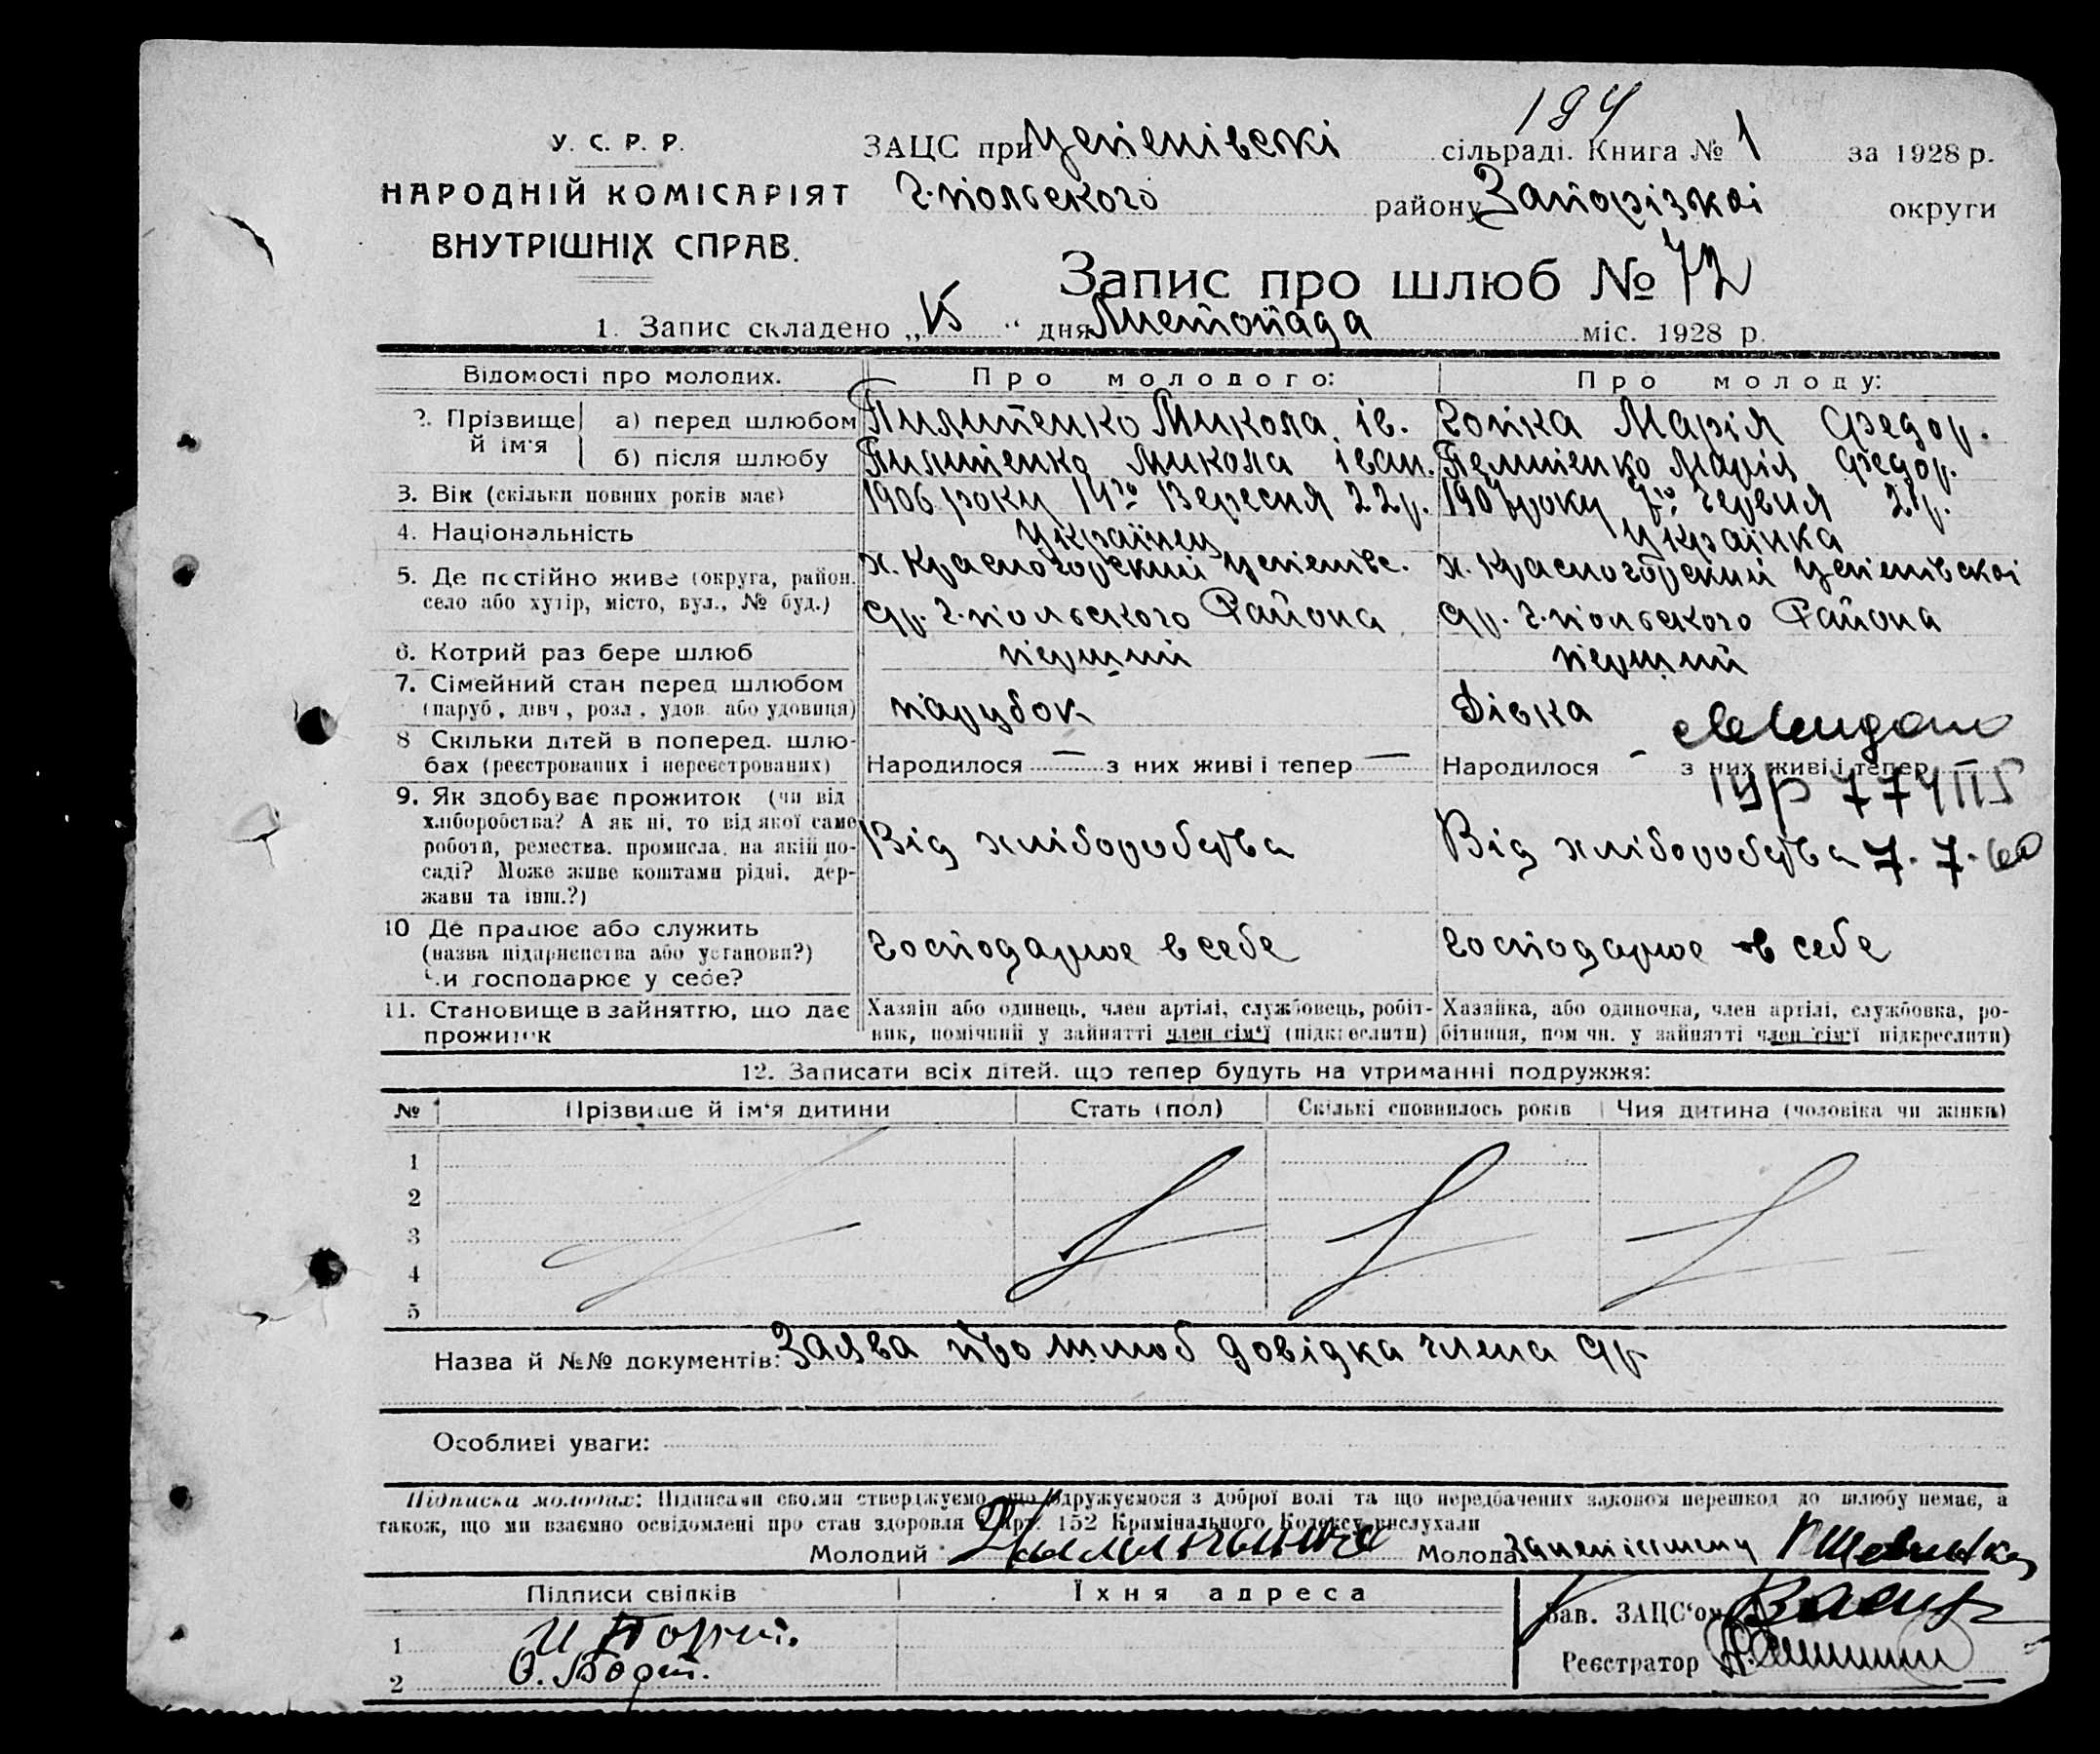 194
У. С. Р. Р.
НАРОДНІЙ КОМІСАРІЯТ
ВНУТРІШНІХ СПРАВ.
ЗАЦС при Успенівскі сільраді. Книга № 1 за 1928 р.
Г.польского району Запорізкоі округи
Запис про шлюб № 72
1. Запис складено „15“ дня Листопада міс. 1928 р.
Відомості про молодих. Про молодого: Про молоду:
2. Прізвище й ім'я
а) перед шлюбом Пилипенко Микола ів. Гопка Марія Федор.
б) після шлюбу Пилипенко Микола іван. Пелипенко Марія Федор.
3. Вік (скільки повних років має) 1906 року 14го Вересня 22р. 1907 року 7го Червня 21р.
4. Національність Українец Українка
5. Де постійно живе (округа, район. село або хутір, місто, вул., № буд.)
х. Красногорский Успенівс. х. Красногорский Успенівскоі
с/р. Г.польского Района с/р. Г.польского Района
6. Котрий раз бере шлюб перший перший
7. Сімейний стан перед шлюбом (паруб., дівч., розл., удов. або удовиця) парубок Дівка
8 Скільки дітей в поперед. шлюбах (реєстрованих і нереєстрованих)
Народилося — з них живі і тепер — Народилося - з них живі і тепер —
7.7.60
9. Як здобуває прожиток (чи від
хліборобства? А як ні, то від якої саме
роботи, ремества, промисла, на якій по-
саді? Може живе коштами рідні, дер-
жави та інш.?)
Від хліборобства Від хліборобства
10 Де працює або служить
(назва підприємства або установи?)
Чи господарює у себе?
Господарює в себе Господарює в себе
11. Становище в зайняттю, що дає прожиток
Хазяїн або одинець, член артілі, службовець, робіт-
ник, помічний у зайнятті член сім'ї (підкреслити)
Хазяйка, або одиночка, член артілі, службовка, ро-
бітниця, пом чн. у зайнятті член сім'ї підкреслити)
12. Записати всіх дітей, що тепер будуть на утриманні подружжя:
№ Прізвище й ім'я дитини Стать (пол) Скількі сповнилось років Чия дитина (чоловіка чи жінки)
1
2
3
4
5
Назва й №№ документів: Заява про шлюб довідка члена с/р
Особливі уваги:
Підписка молодих: Підписами своїми стверджуємо, що одружуємося з доброї волі та що передбачених законом перешкод до шлюбу немає, а
також, що ми взаємно освідомлені про стан здоровля і арт. 152 Кримінального Кодексу вислухали
Молодий Молода
Підписи свідків Їхня адреса
1
2
Зав. ЗАЦС'ом
Реєстратор